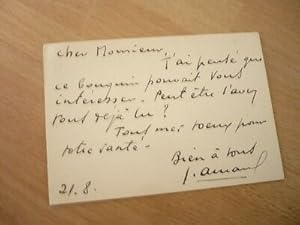 Cher Monsieur,
J'ai pensé que
ce bouquin pouvait vous
intéresser. Peut être l'avez
vous déjà lu ?
Tous mes voeux pour
votre santé -
Bien à vous
21.8.